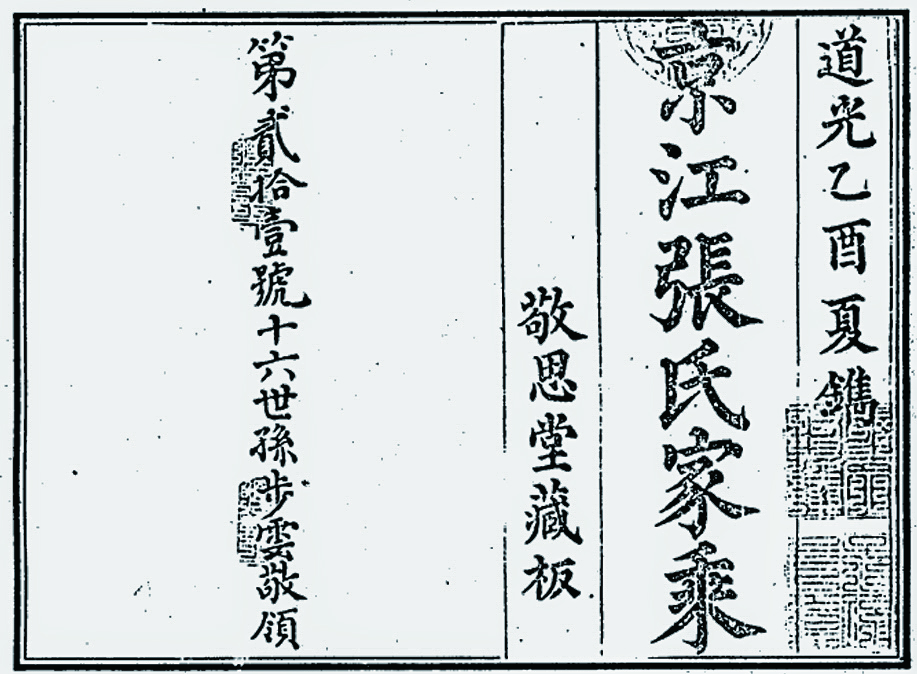 道光乙酉夏鐫
京江張氏家乘
敬思堂藏板
第貳拾壹號十六世孫步雲敬領